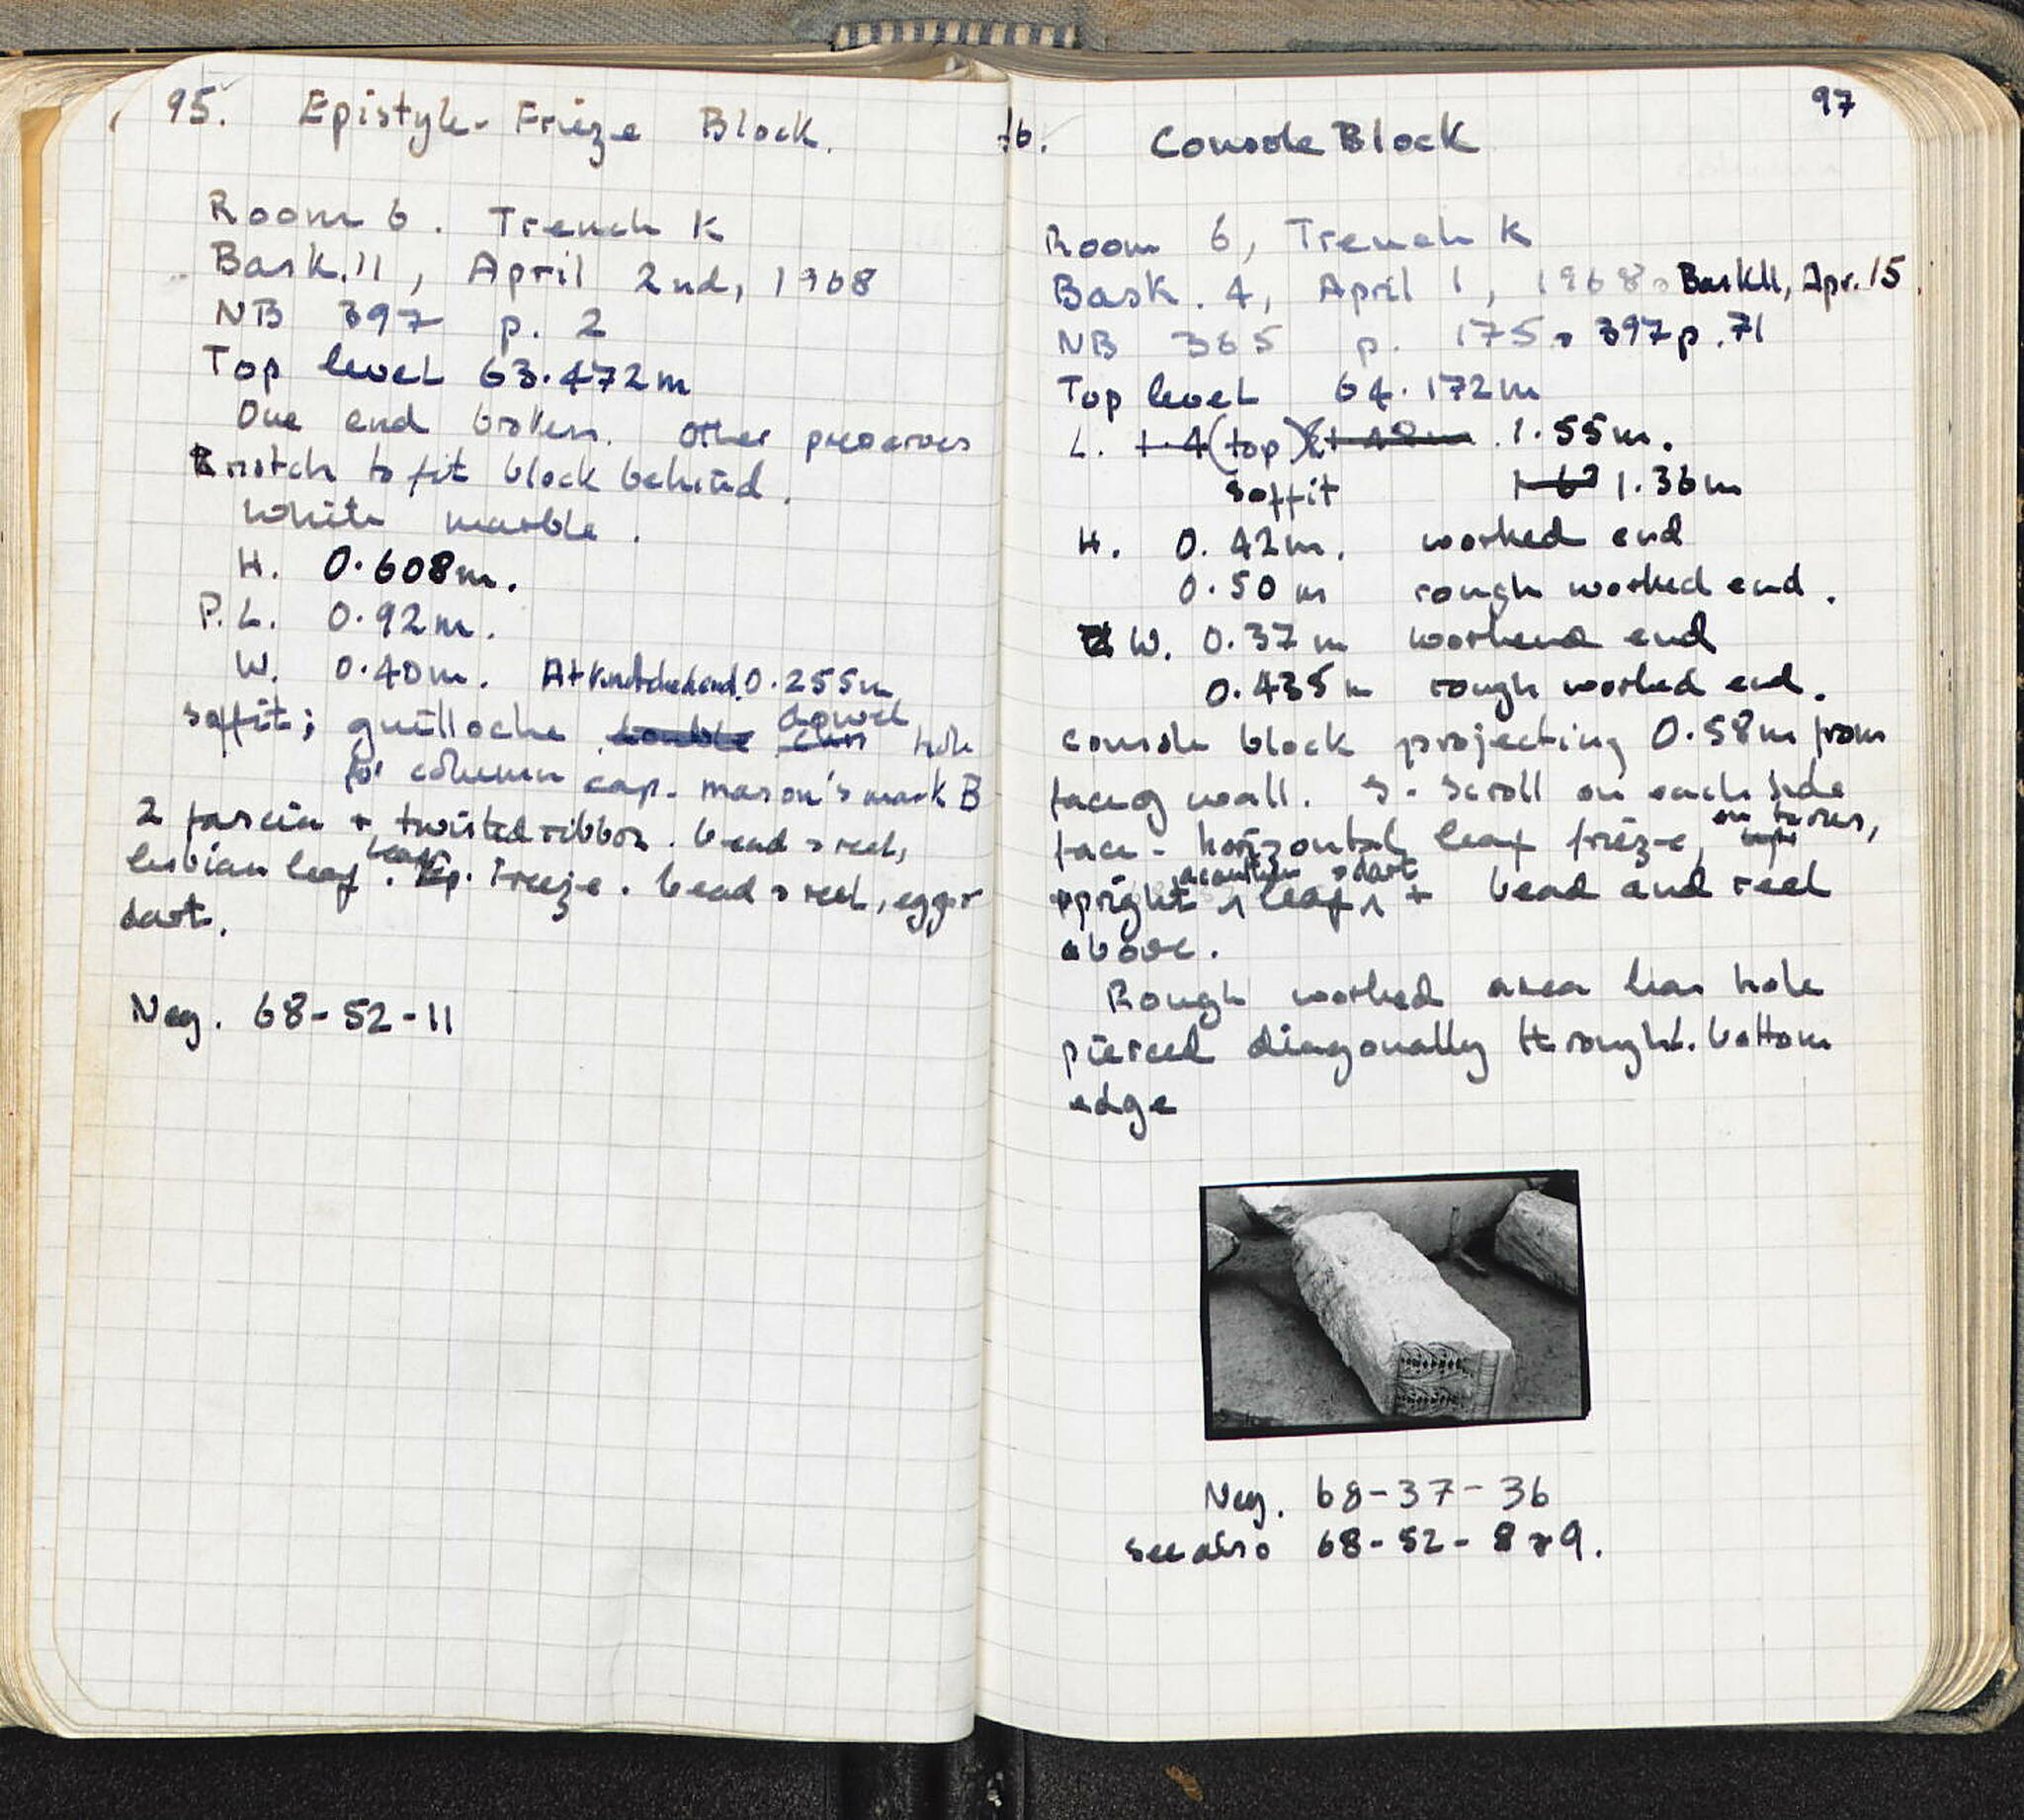 95. Epistyle-Frieze Block.
Room 6. Trench K
Bask. 11, April 2nd, 1968
NB 397 p. 2
Top level 63.472m
One end broken. Other preserves
notch to fit block behind.
White marble.
H. 0.608m.
P.L. 0.92m.
W. 0.40m. At notched end 0.255m
soffit; guilloche double dowel hole
for column cap. mason's mark B
2 fascia + twisted ribbon. bead & reel,
lesbian leaf. Frieze. bead & reel, egg &
dart.
Neg. 68-52-11
97
Console Block
Room 6, Trench K
Bask. 4, April 1, 1968 & Bask 11, Apr. 15
NB 365 p. 175 & 397 p. 71
Top level 64.172m
L. 1.4 (top) 1.48m 1.55m.
soffit 1.36m
H. 0.42m. worked end
0.50m rough worked end.
W. 0.37m workend end
0.435m rough worked end.
console block projecting 0.58m from
face of wall. S-scroll on each side
face - horizontal leaf frieze, on torus,
upright acanthus leaf & dart + bead and reel
above.
Rough worked area has hole
pierced diagonally through bottom
edge
Neg. 68-37-36
See also 68-52-8 & 9.